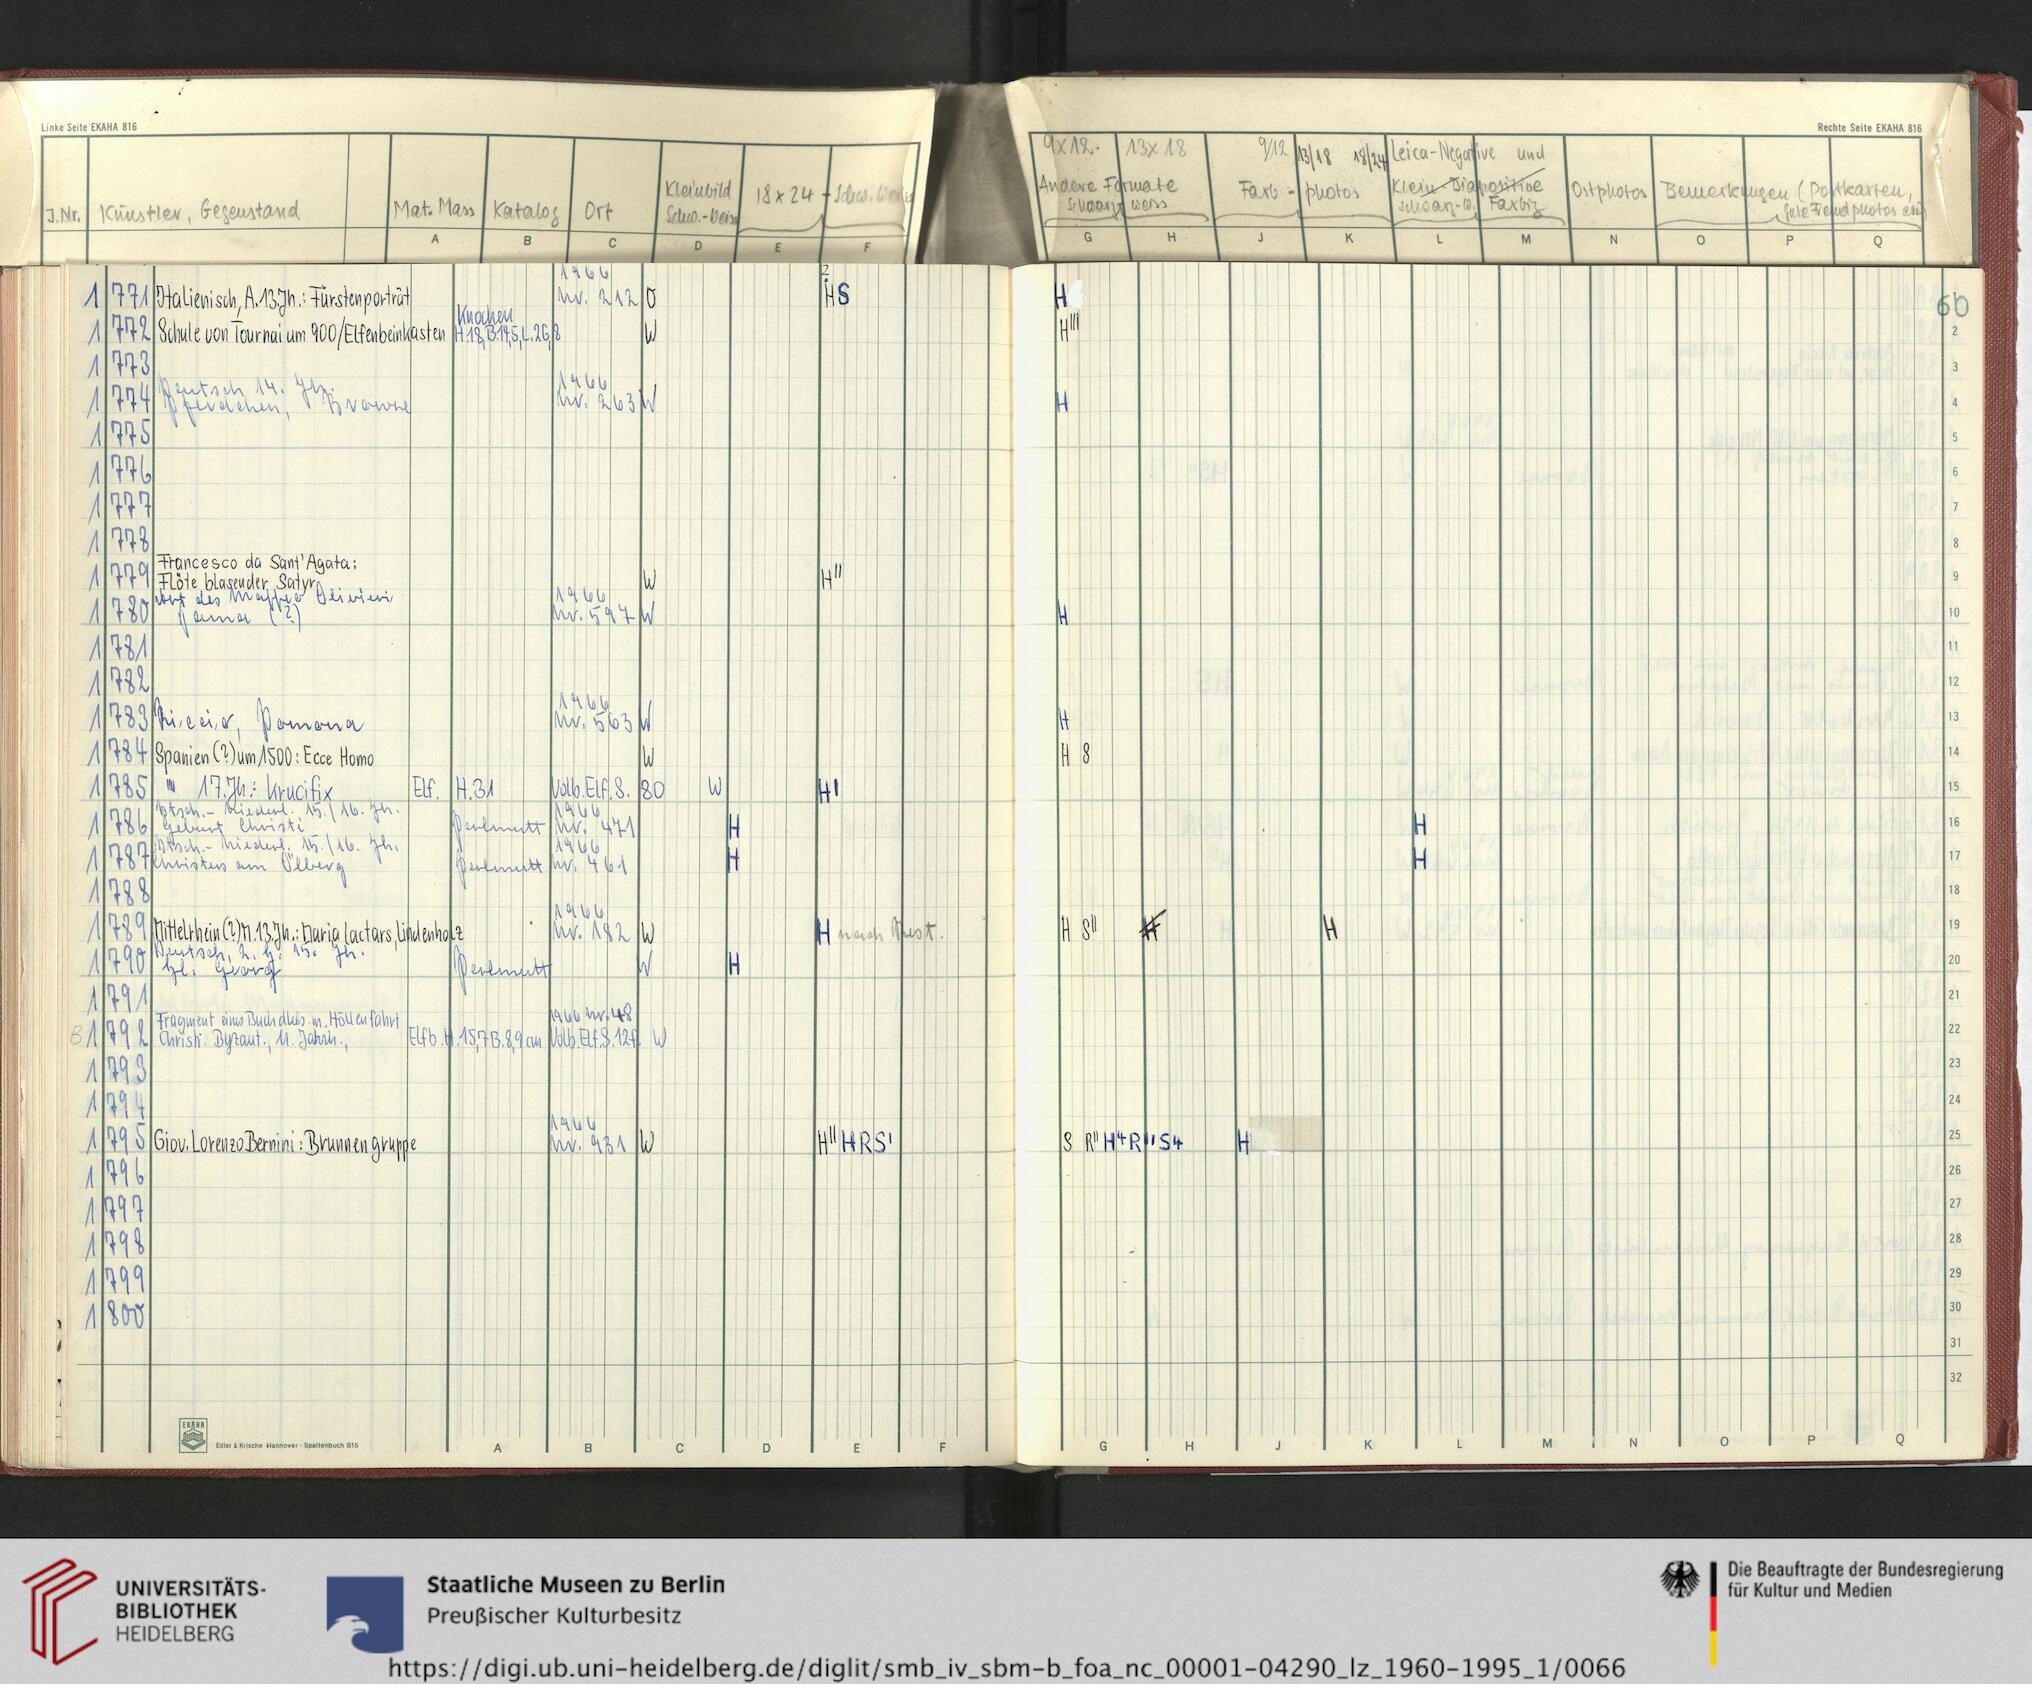 Linke Seite EKAHA 816
Rechte Seite EKAHA 816
J.Nr. Künstler, Gegenstand Mat. Mass Katalog Ort Kleinbild Schw.-Weiss 18 x 24 - Schw. Weiss
A B C D E F
9x12. 13x18 9/12 13/18 18/24 Leica-Negative und
Andere Formate Farb- photos Klein-Diapositive Ostphotos Bemerkungen (Postkarten,
Schwarz weiss schwarz-w. Farbig gute Fremdphotos etc)
G H J K L M N O P Q
60
1 771 Italienisch, A.13.Jh.: Fürstenporträt 1966 Nr. 212 O 2 HS H
1 772 Schule von Tournai um 900/Elfenbeinkasten Knochen H.18, B.14,5, L.26,8 W H''' 2
1 773 3
1 774 Deutsch 14. Jh. Pferdchen, Bronze 1966 Nr. 263 W H 4
1 775 5
1 776 6
1 777 7
1 778 8
1 779 Francesco da Sant'Agata: Flöte blasender Satyr W H'' 9
1 780 Art des Maffeo Olivieri Dama (?) 1966 Nr. 597 W H 10
1 781 11
1 782 12
1 783 Riccio, Pomona 1966 Nr. 563 W H 13
1 784 Spanien (?) um 1500: Ecce Homo W H 8 14
1 785 " 17.Jh.: Krucifix Elf. H.31 Volb. Elf. S. 80 W H' 15
1 786 Dtsch.-Niederl. 15./16. Jh. Geburt Christi Perlmutt 1966 Nr. 471 H H 16
1 787 Dtsch.-Niederl. 15./16. Jh. Christus am Ölberg Perlmutt 1966 Nr. 461 H H 17
1 788 18
1 789 Mittelrhein (?) M.13.Jh.: Maria lactans, Lindenholz 1966 Nr. 182 W H nach Rest. H S'' H K 19
1 790 Deutsch, 2. H. 15. Jh. Hl. Georg Perlmutt W H 20
1 791 21
B 1 792 Fragment eines Buchdeckls. m. Höllenfahrt Christi. Byzant., 11. Jahrh., Elfb. H. 15,7 B. 8,9 cm 1966 Nr. 48 Volb. Elf. S. 12f. W 22
1 793 23
1 794 24
1 795 Giov. Lorenzo Bernini: Brunnengruppe 1966 Nr. 931 W H'' HRS' S R'' H4 R'' S4 H 25
1 796 26
1 797 27
1 798 28
1 799 29
1 800 30
31
32
EKAHA
Edler & Krische Hannover - Spaltenbuch 816
A B C D E F G H J K L M N O P Q
UNIVERSITÄTS-
BIBLIOTHEK
HEIDELBERG
Staatliche Museen zu Berlin
Preußischer Kulturbesitz
Die Beauftragte der Bundesregierung
für Kultur und Medien
https://digi.ub.uni-heidelberg.de/diglit/smb_iv_sbm-b_foa_nc_00001-04290_lz_1960-1995_1/0066